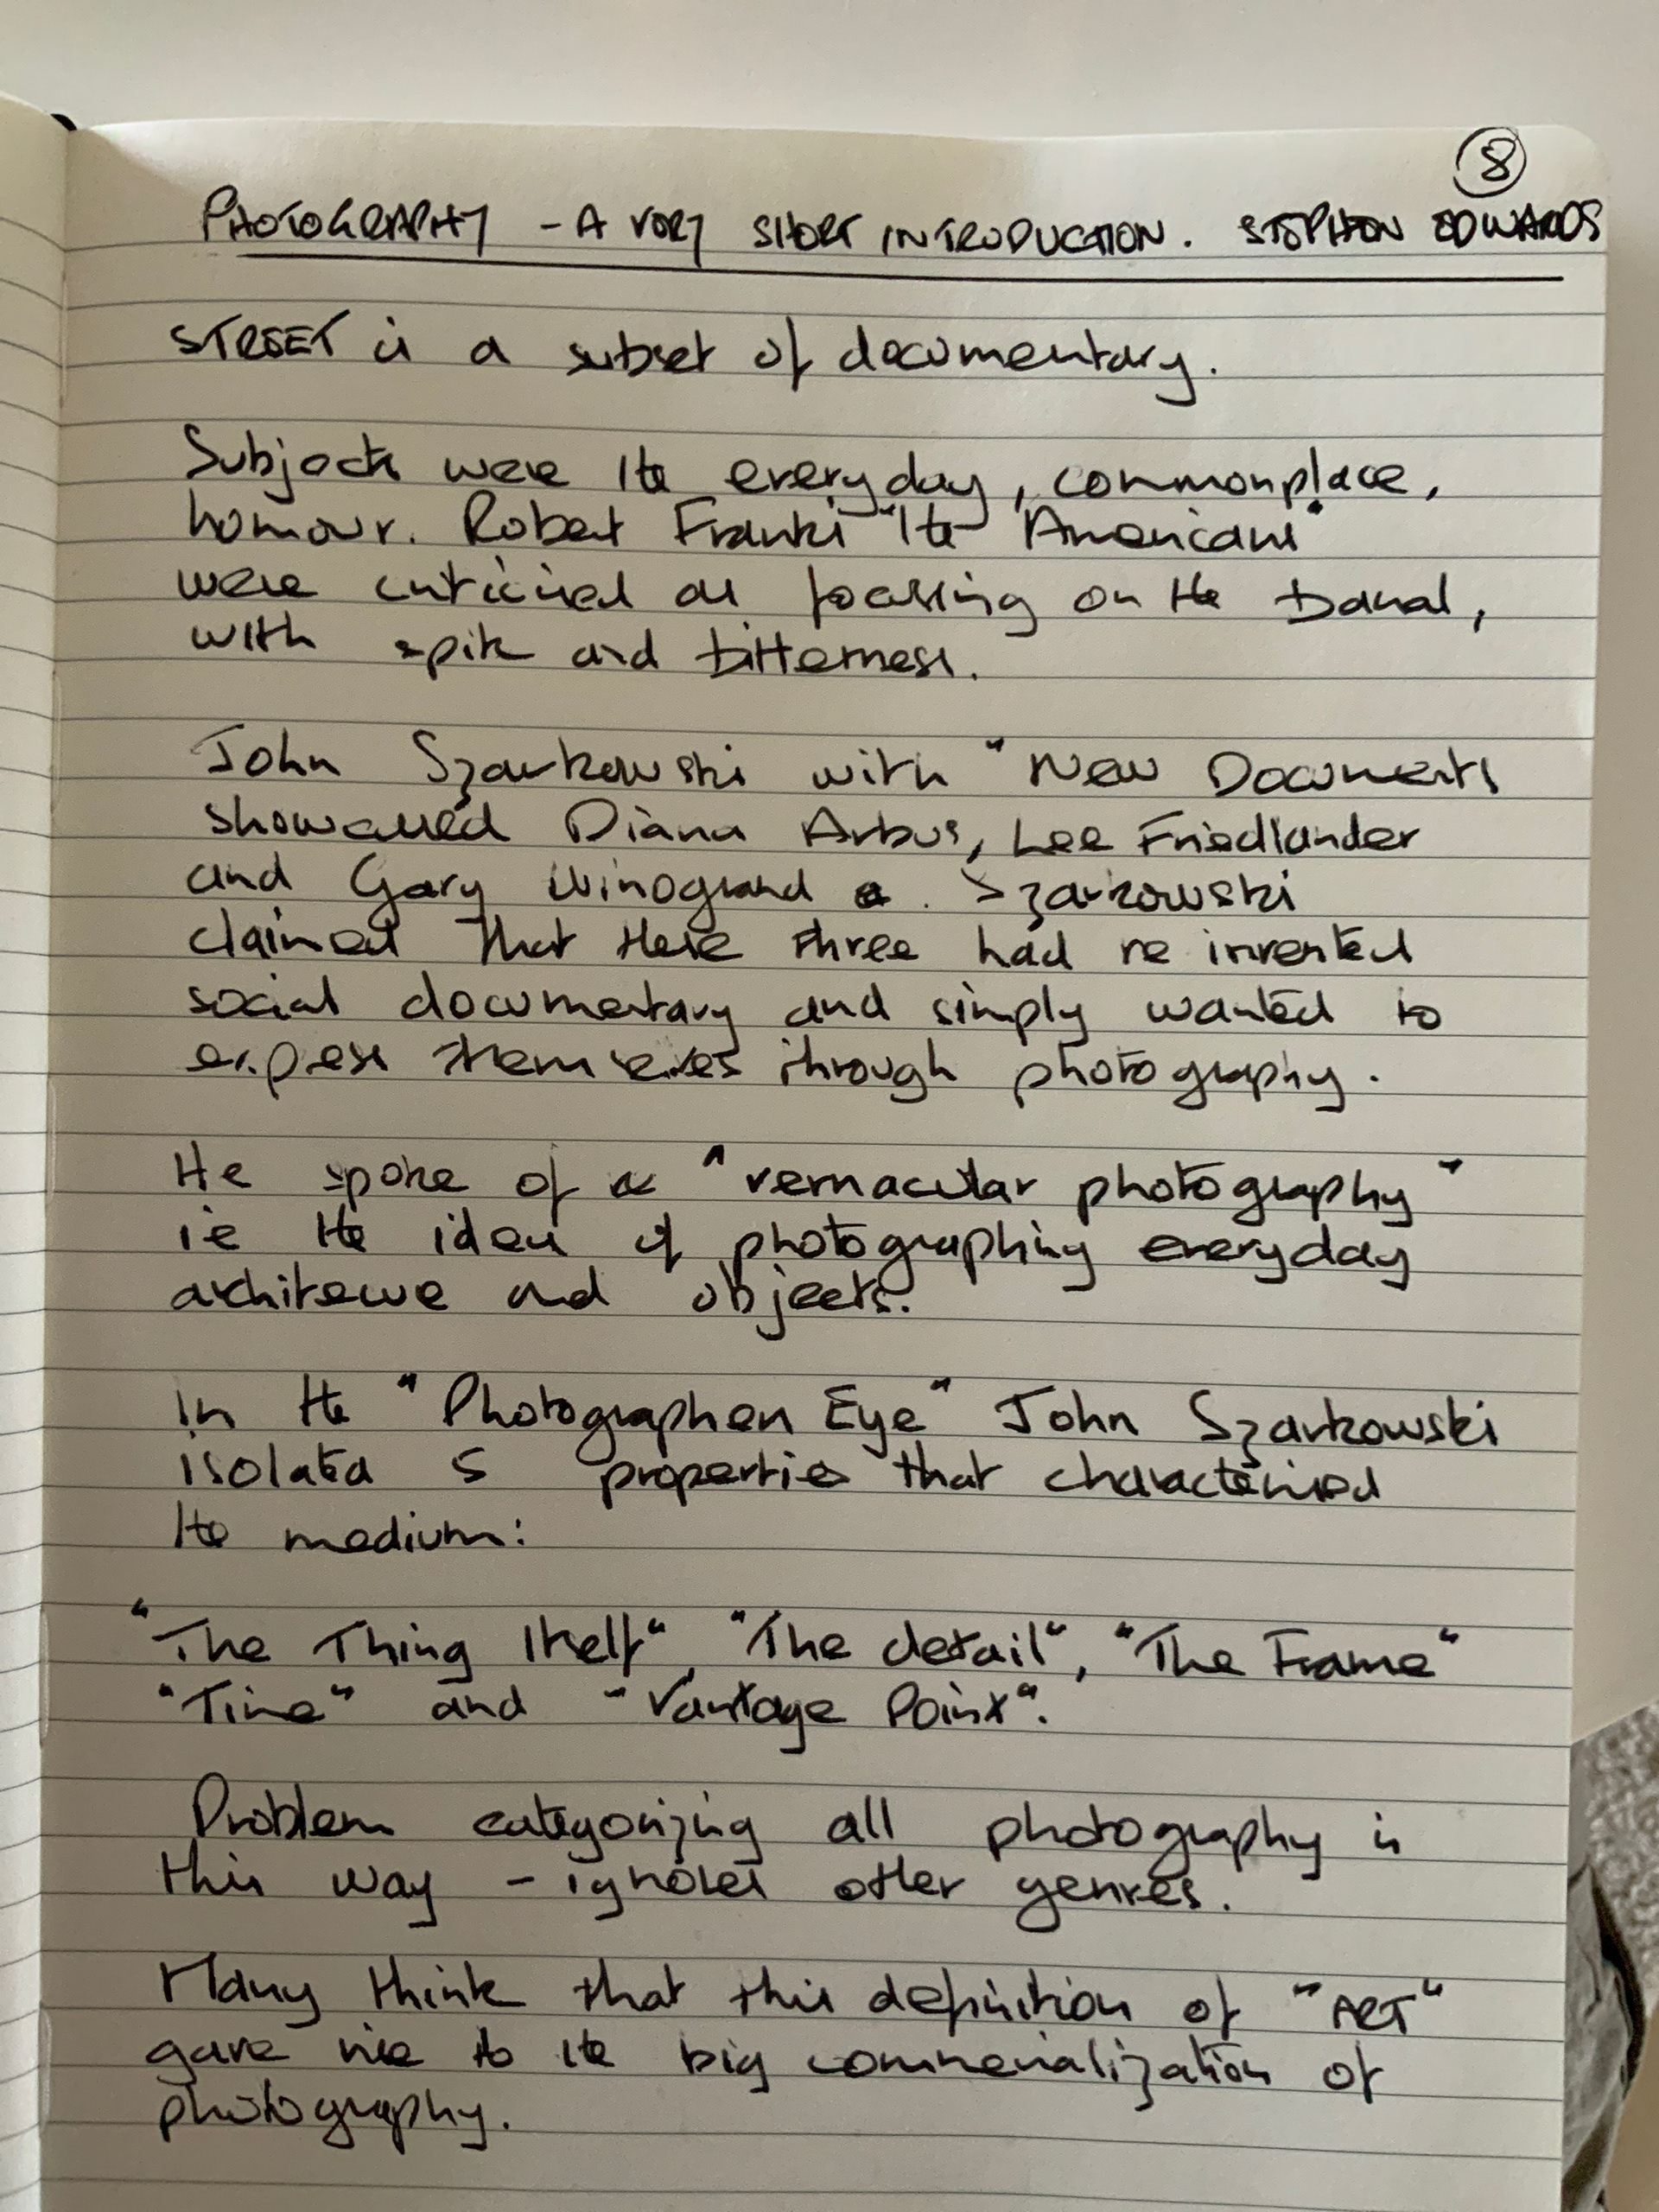 8
PHOTOGRAPHY - A VERY SHORT INTRODUCTION. STEPHEN EDWARDS
STREET is a subset of documentary.
Subjects were the everyday, commonplace,
humour. Robert Franks "the Americans"
were criticised as focussing on the banal,
with spite and bitterness.
John Szarkowski with "New Documents
showcased Diana Arbus, Lee Friedlander
and Gary Winogrand. Szarkowski
claimed that these three had re invented
social documentary and simply wanted to
express themselves through photography.
He spoke of a "vernacular photography"
ie the idea of photographing everyday
architecture and objects.
In the "Photographers Eye" John Szarkowski
isolated 5 properties that characterised
the medium:
"The Thing Itself", "The detail", "The Frame"
"Time" and "Vantage Point".
Problem categorizing all photography in
this way - ignores other genres.
Many think that this definition of "ART"
gave rise to the big commercialization of
photography.